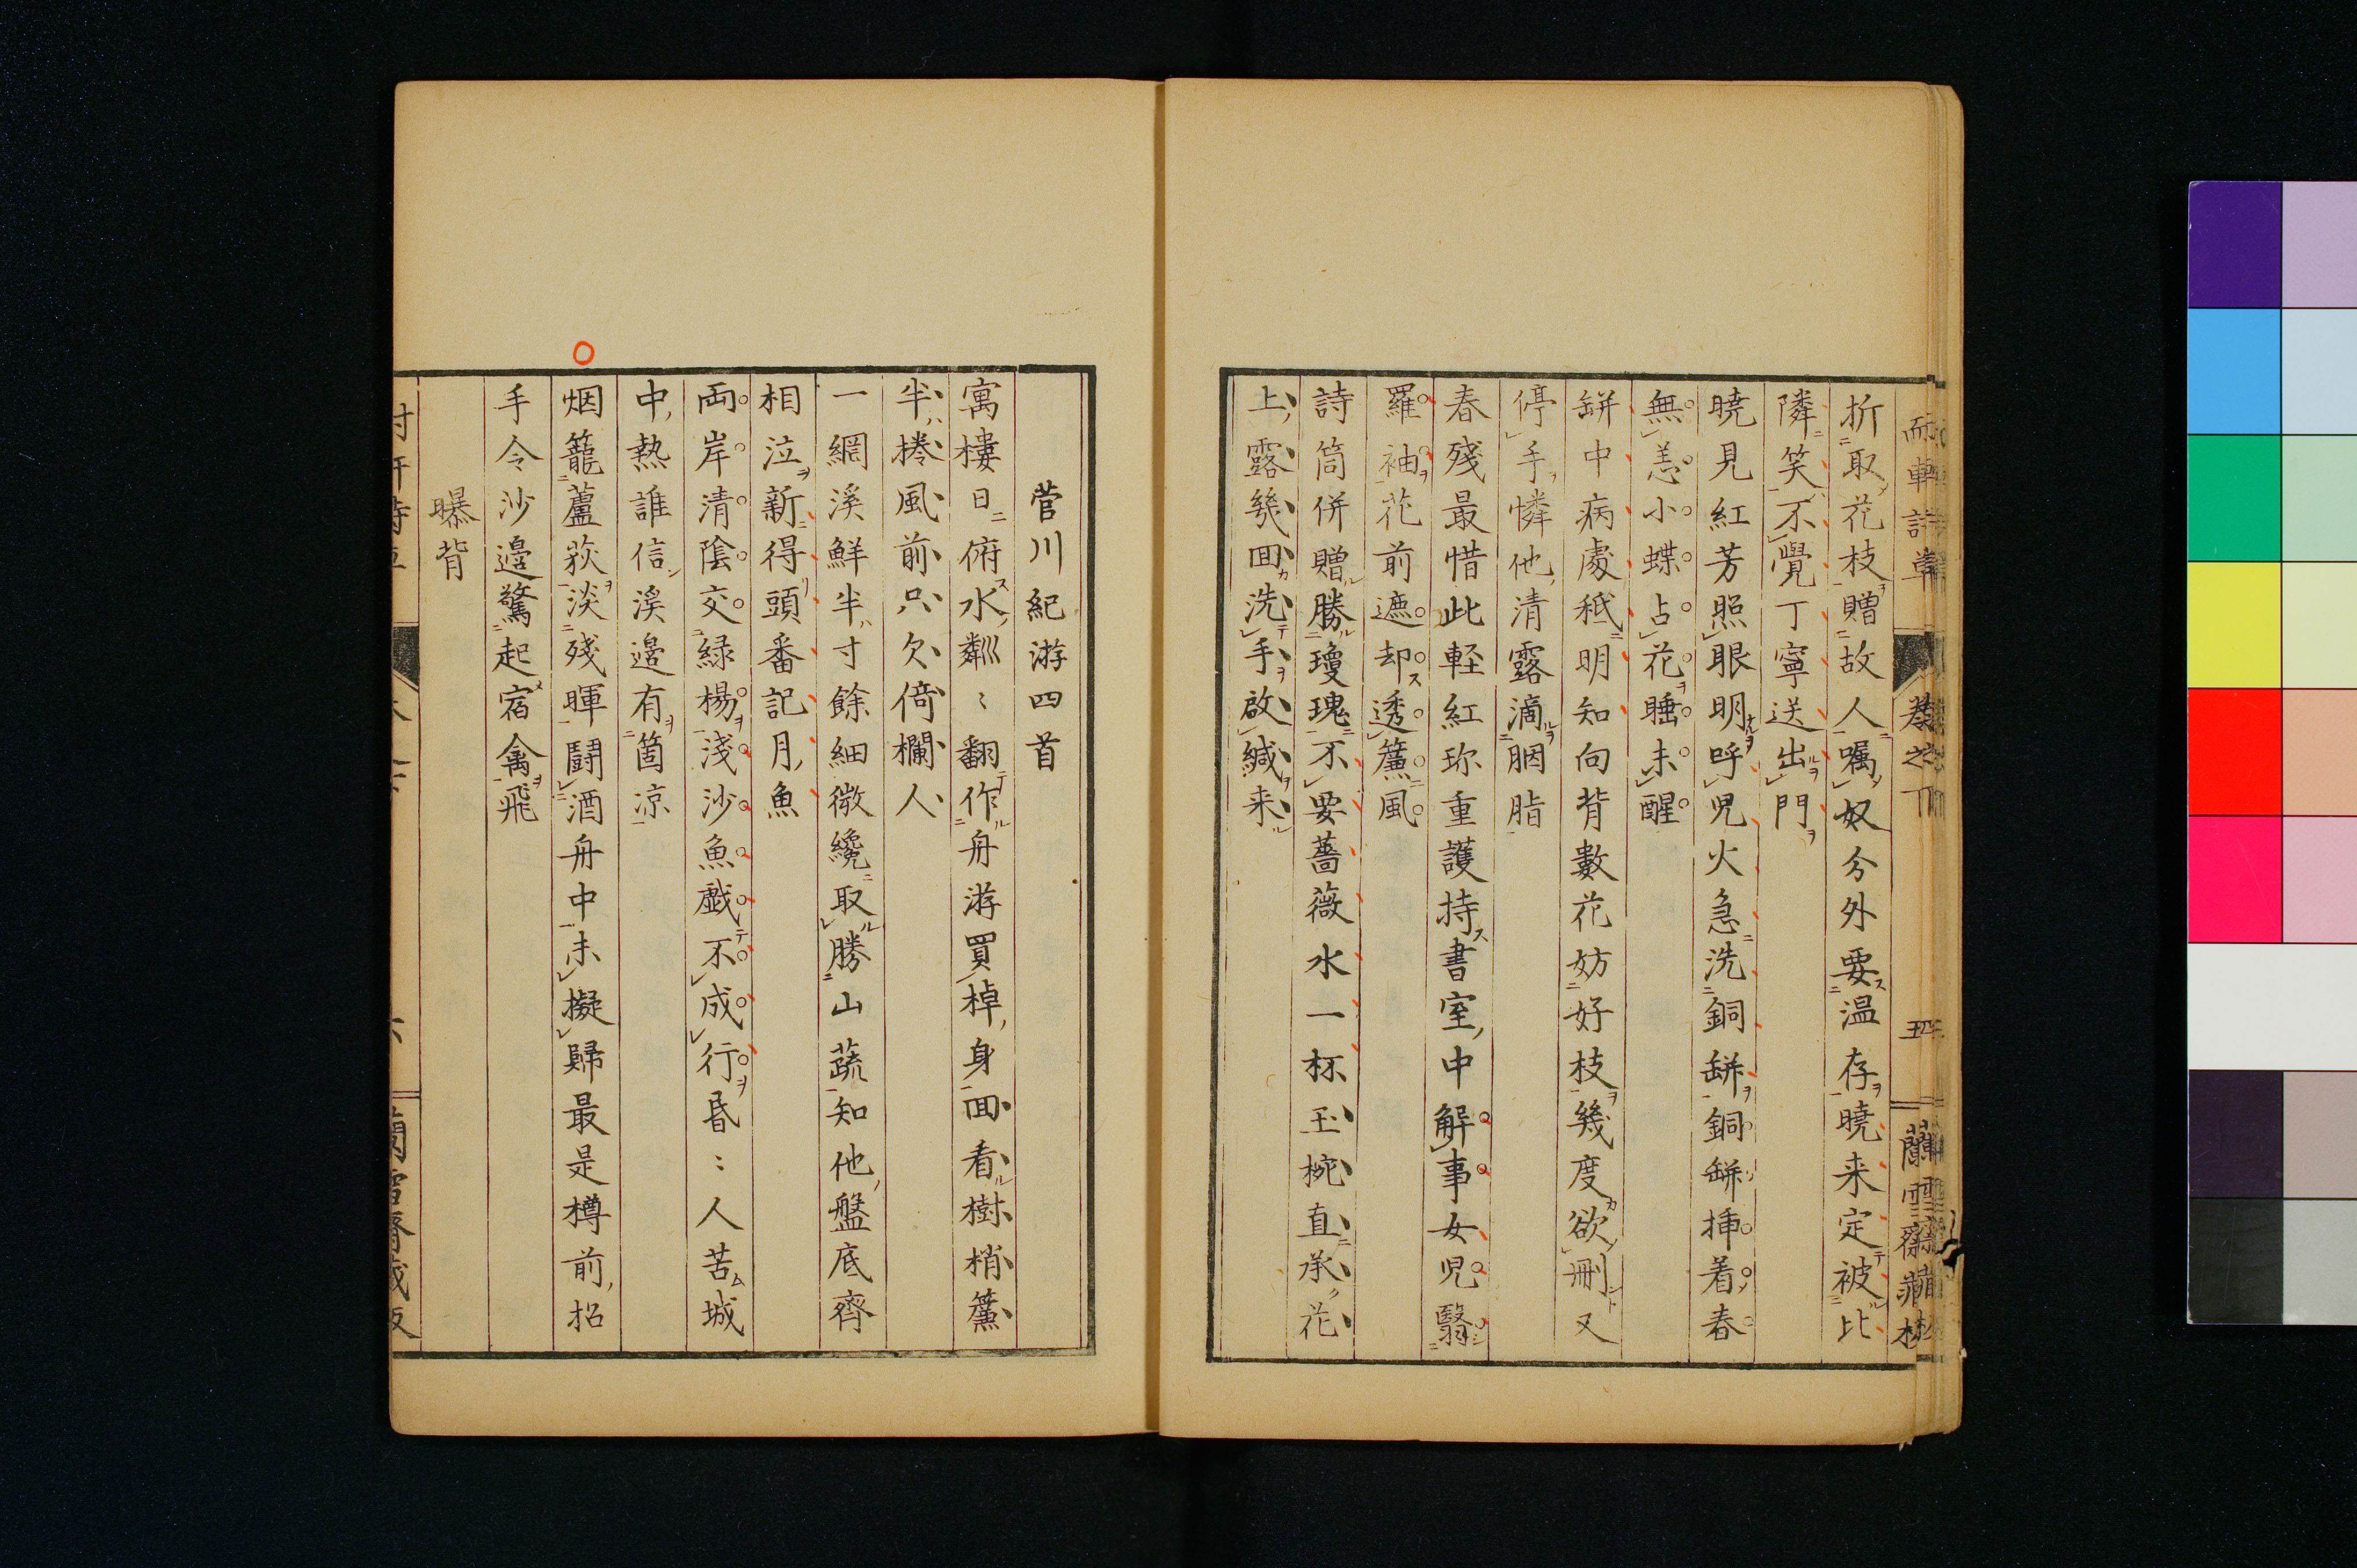 折取花枝贈故人嘱奴分外要温存暁来定被比
隣笑不覺丁寧送出門
暁見紅芳照眼明呼児火急洗銅缾銅缾挿着春
無恙小蝶占花睡未醒
缾中病處秪明知向背數花妨好枝幾度欲刪又
停手憐他清露滴胭脂
春残最惜此軽紅珎重護持書室中解事女児翳
羅袖花前遮却透簾風
詩筒併贈勝瓊瑰不要薔薇水一杯玉椀直承花
上露幾回洗手啟緘来
菅川紀游四首
寓樓日俯水粼〻翻作舟游買棹身回看樹梢簾
半捲風前只欠倚欄人
一網溪鮮半半寸餘細微纔取勝山蔬知他盤底齊
相泣新得頭番記月魚
両岸清陰交緑楊淺沙魚戲不成行昬〻人苦城
中熱誰信溪邉有箇凉
烟籠蘆荻淡残暉鬪酒舟中未擬歸最是樽前招
手令沙邉驚起宿禽飛
曝背